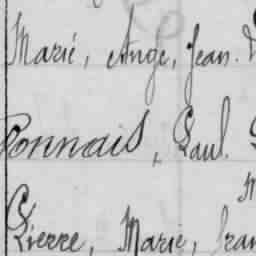 Marie, Ange, Jean.
Ponnais, Paul.
Pierre, Marie, Fran